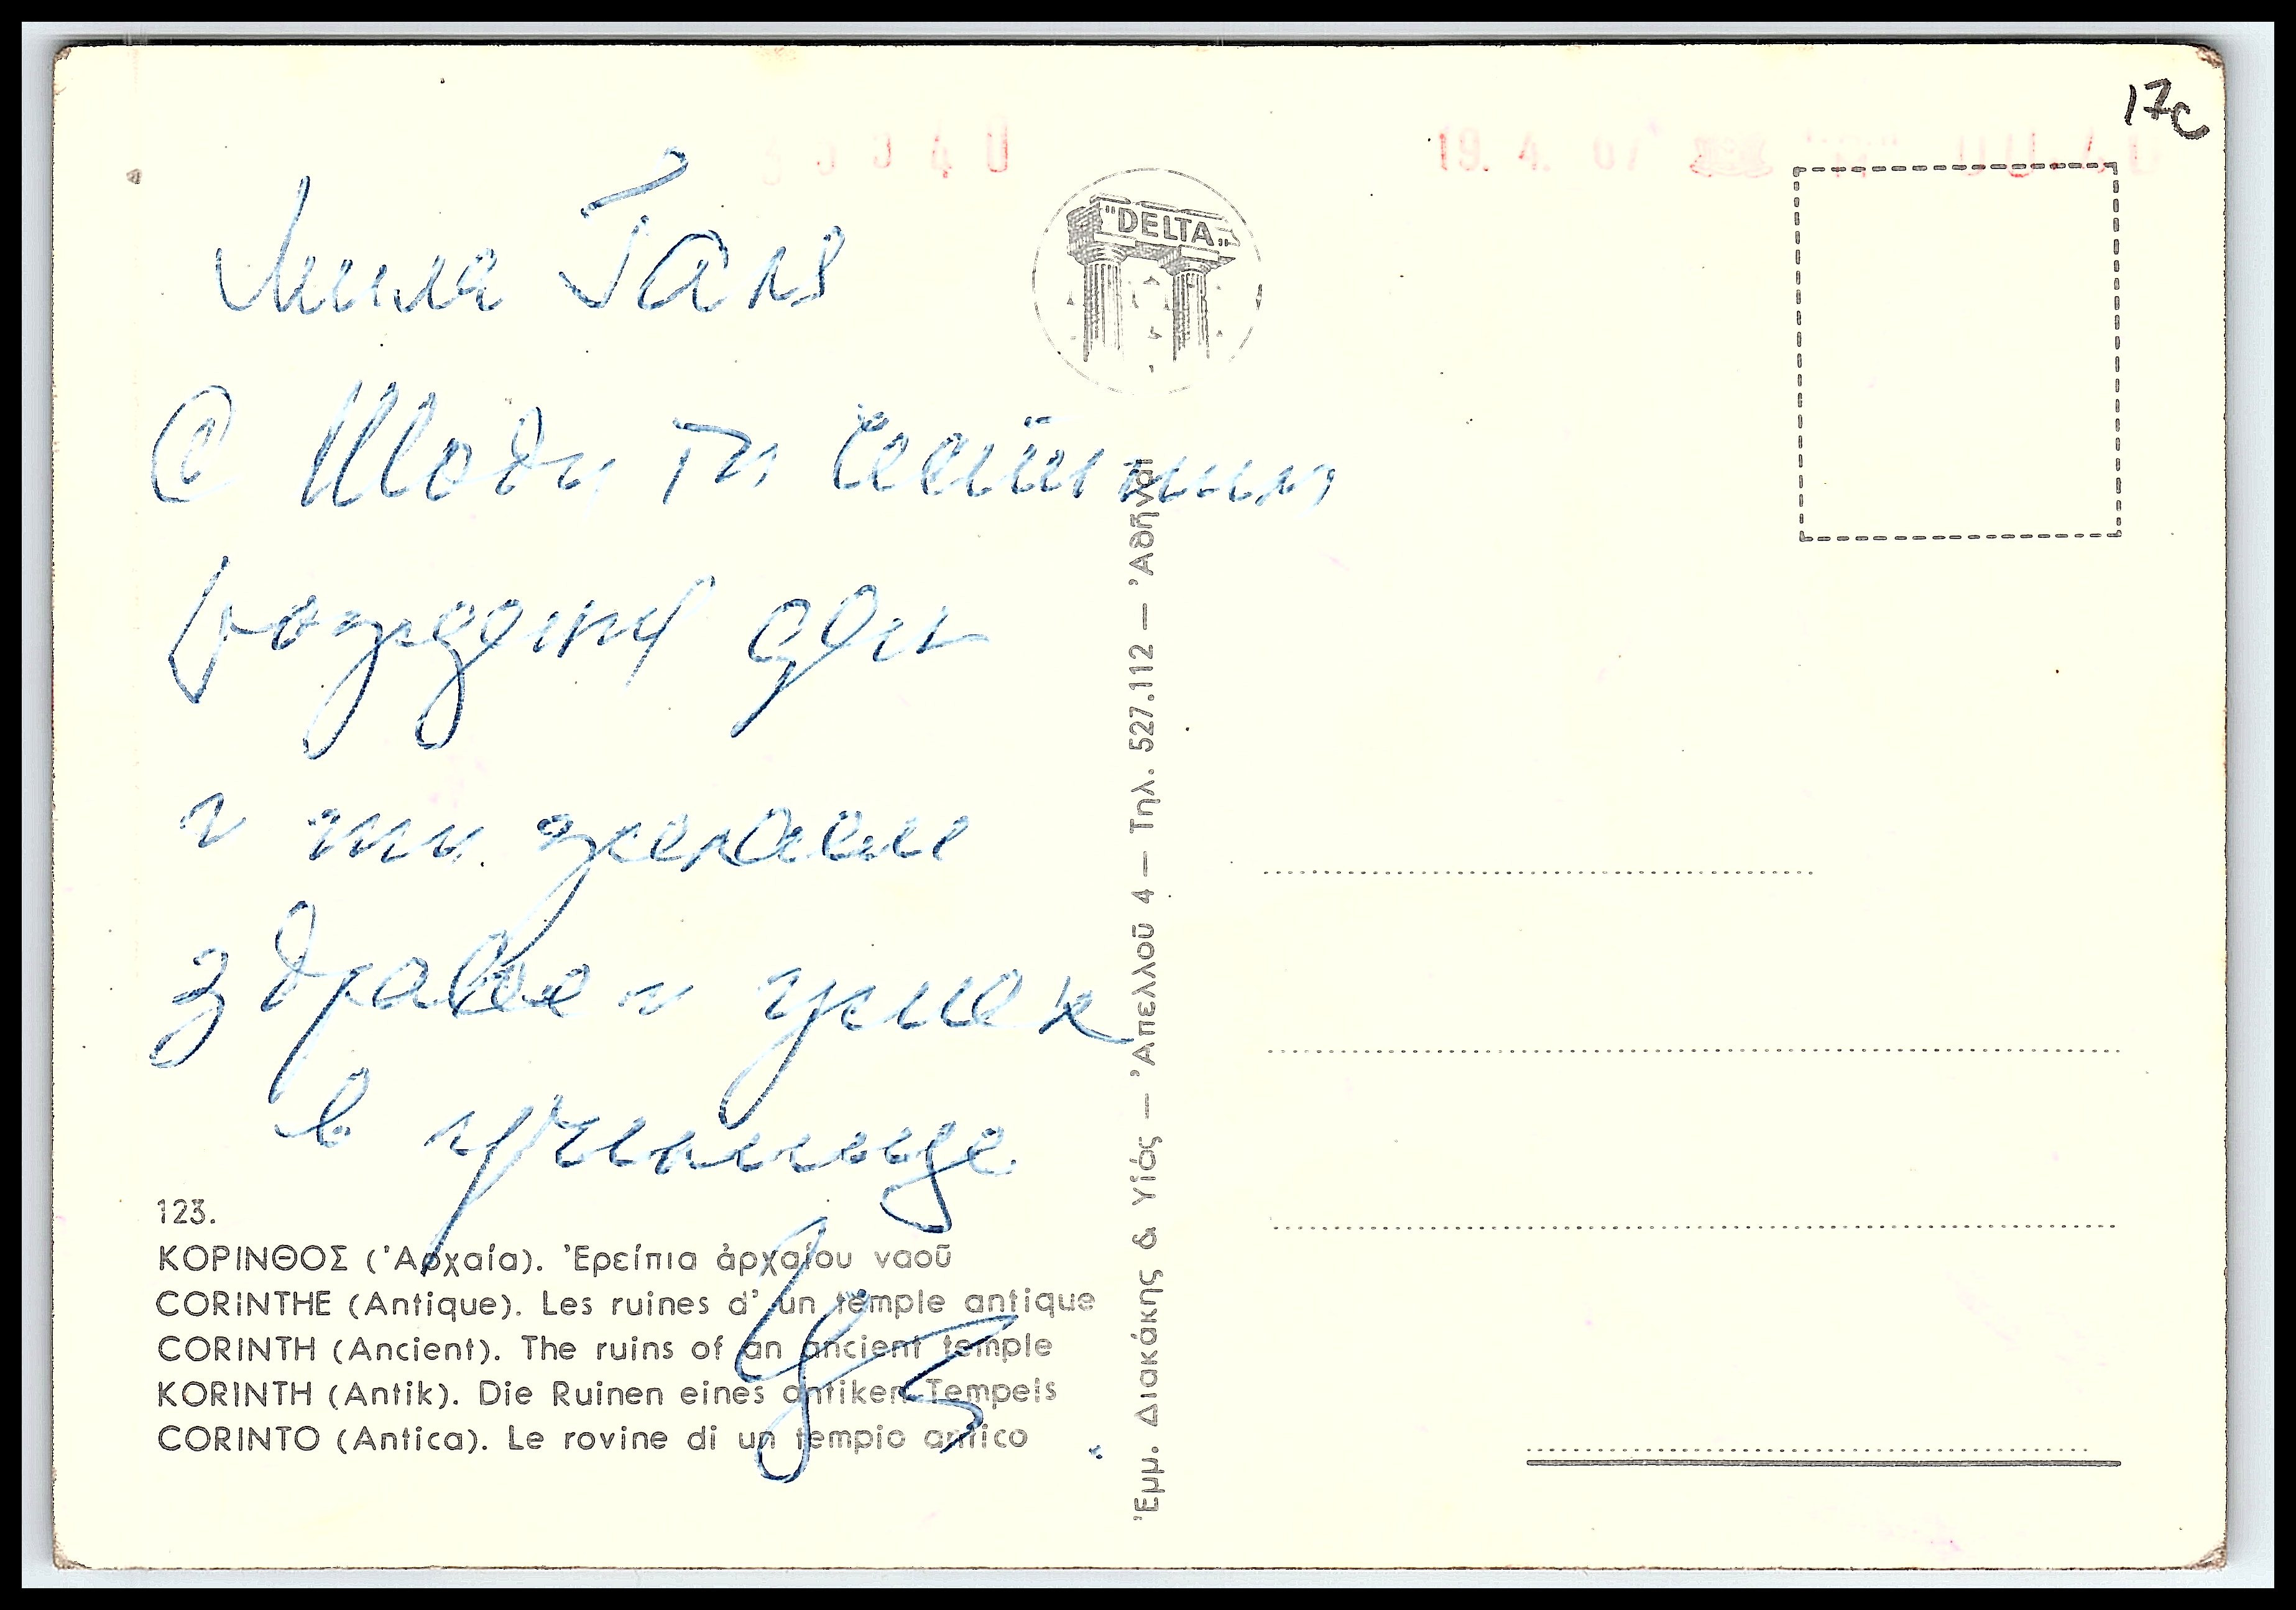 17c
19. 4. 67
"DELTA"
Мила Галя
С Шоди ти честитим
рождения ден
и ти желаем
здраве и успех
в училище.
123.
ΚΟΡΙΝΘΟΣ (Ἀρχαία). Ἐρείπια ἀρχαίου ναοῦ
CORINTHE (Antique). Les ruines d' un temple antique
CORINTH (Ancient). The ruins of an ancient temple
KORINTH (Antik). Die Ruinen eines antiken Tempels
CORINTO (Antica). Le rovine di un tempio antico
Ἐμμ. Διακάκης & Υἱός — Ἀπελλοῦ 4 — Τηλ. 527.112 — Ἀθῆναι